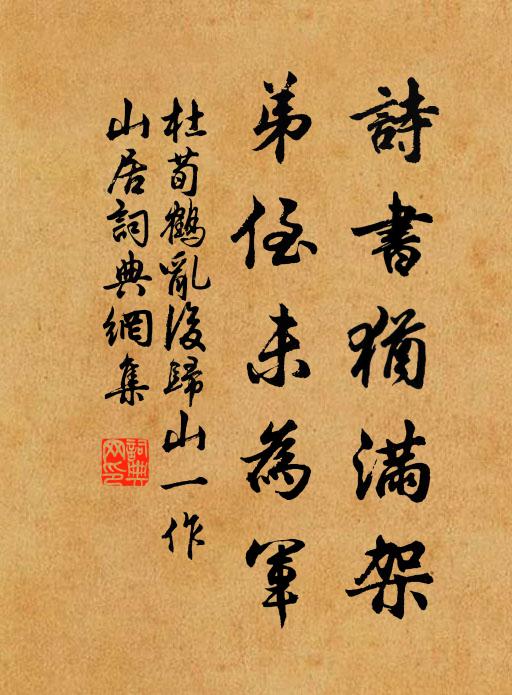 詩書猶滿架
弟侄未為軍
杜荀鶴亂後歸山一作
山居詞典網集
詞典网印